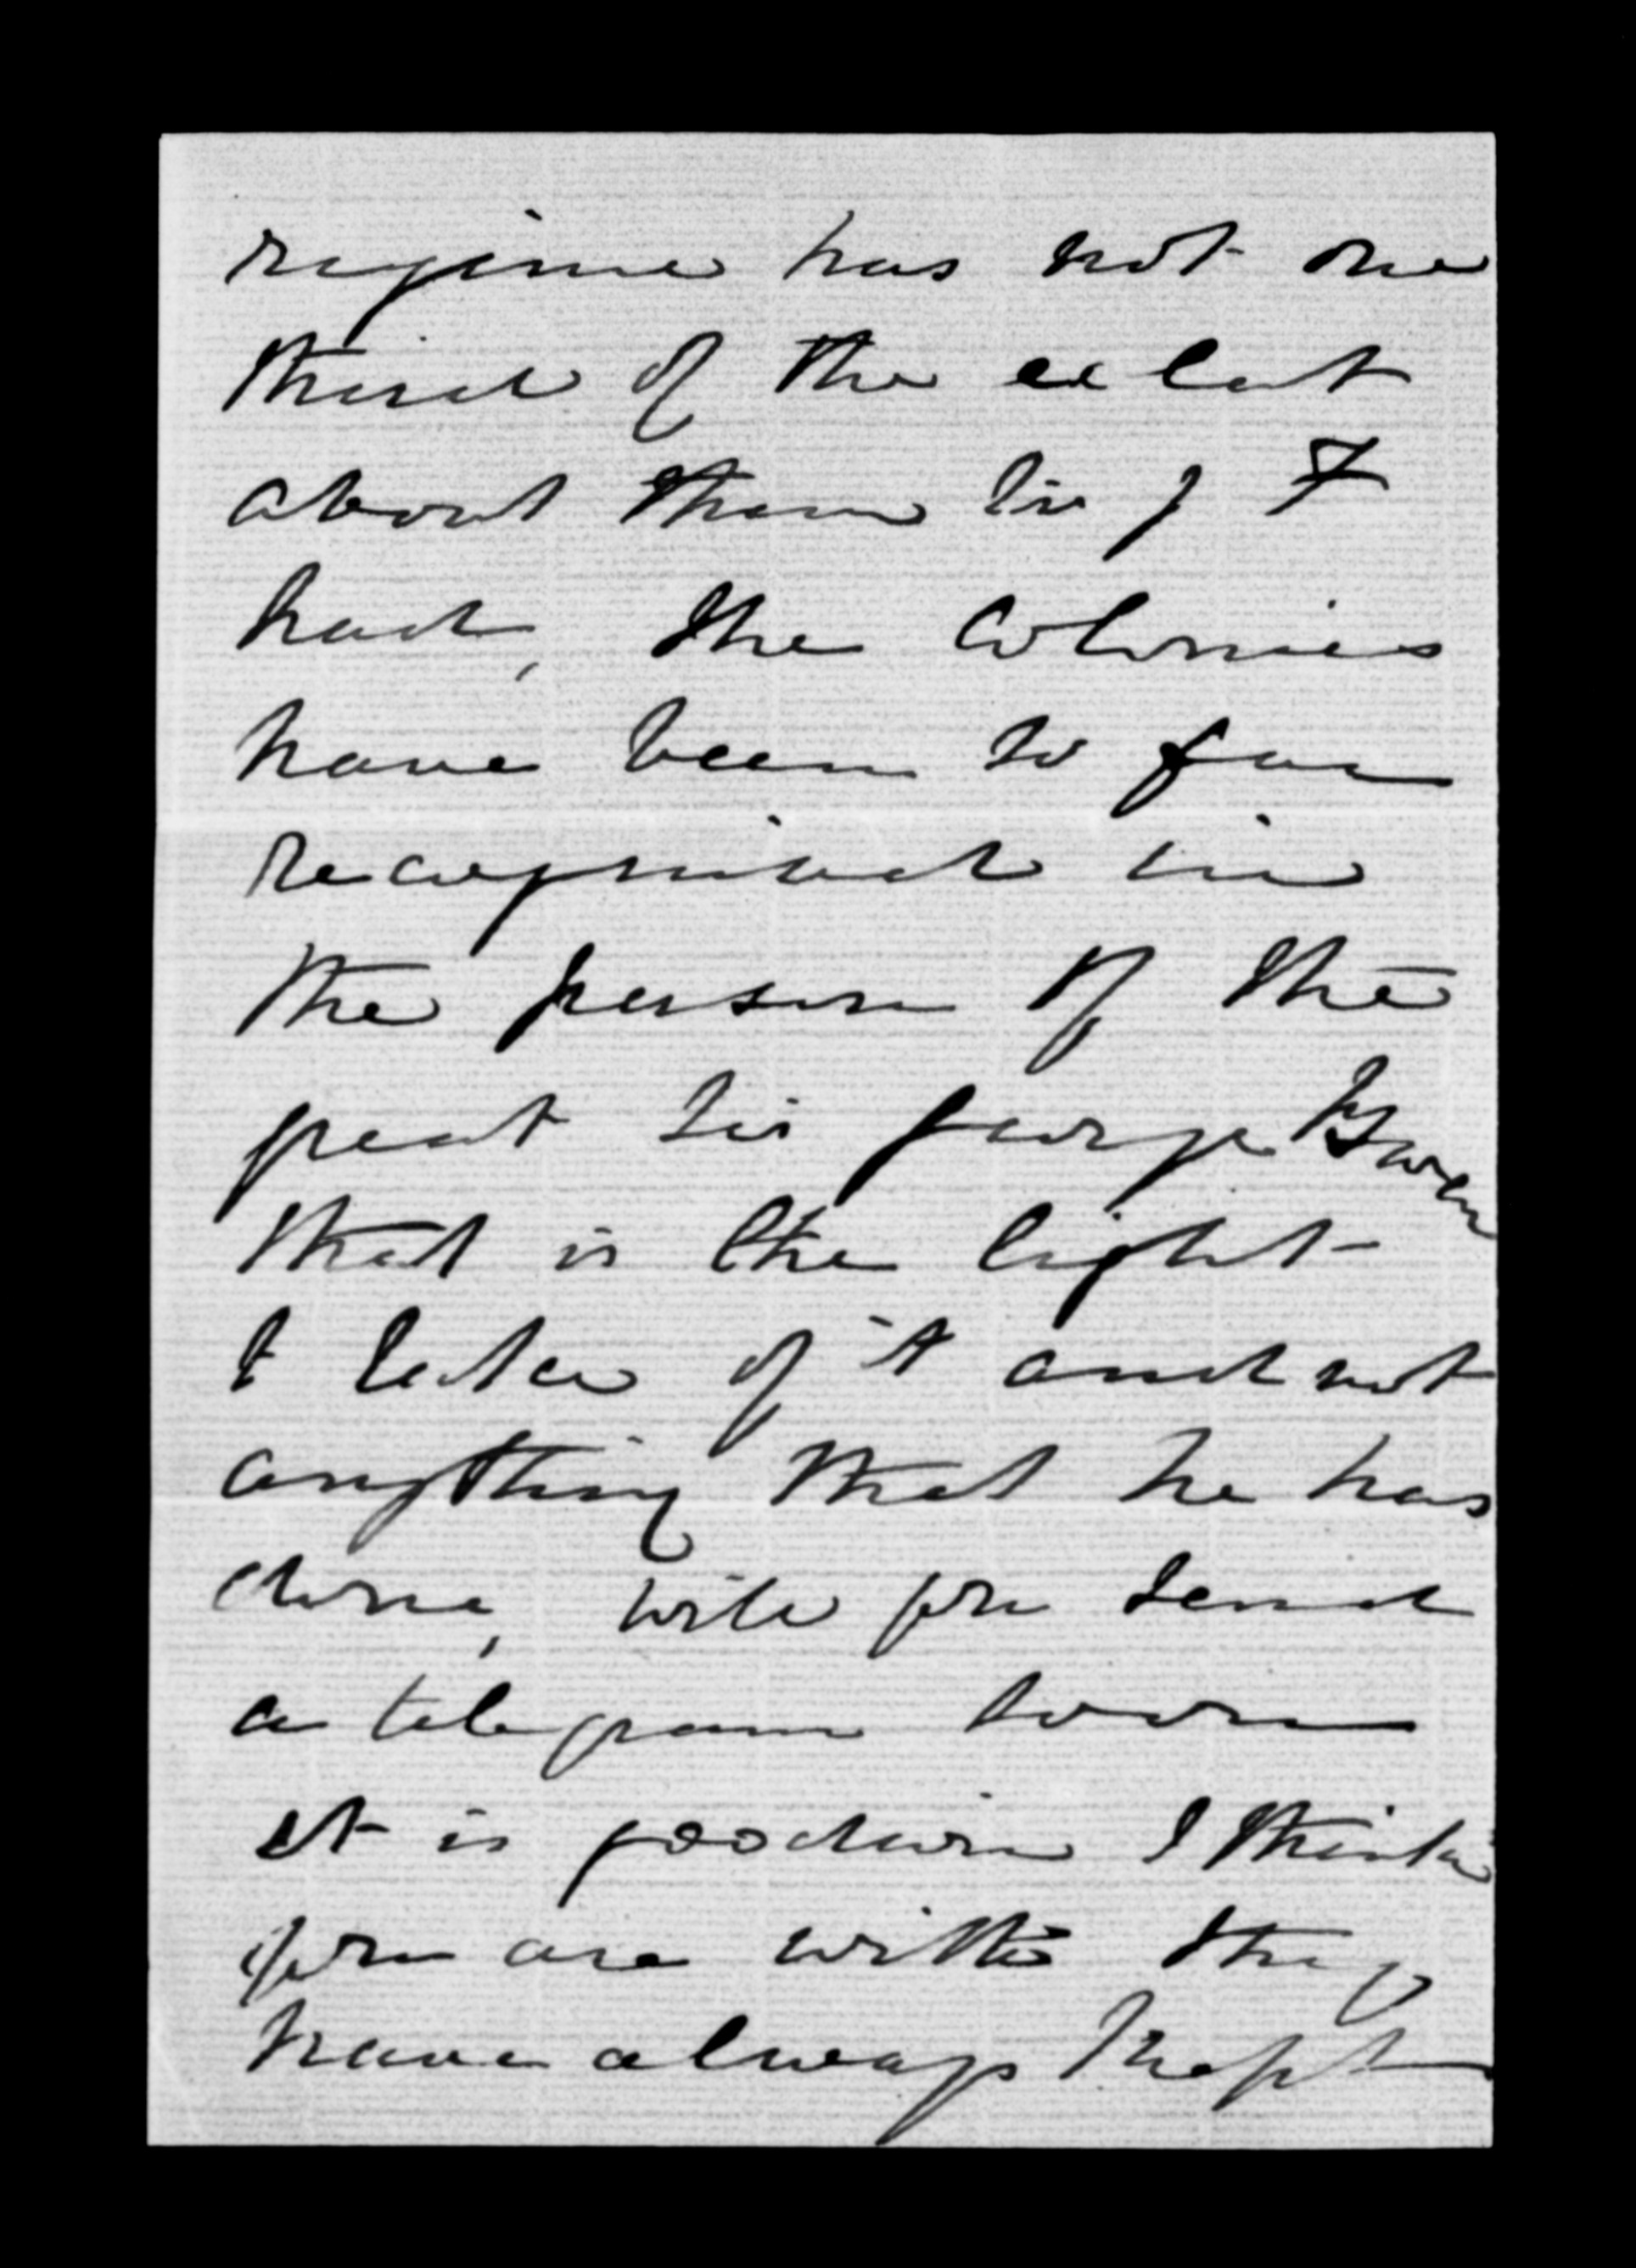 regime has not one
third of the eclat
about them Sir J F
had, the Colonies
have been so far
recognised in
the person of the
great Sir George Bowen
that is the light
I take of it and not
anything that he has
done, will you send
a telegram soon
it is goodwin I think
you are with they
have always kept